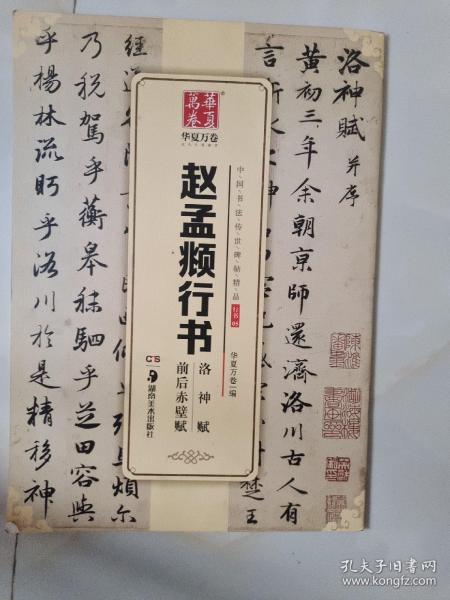 洛神賦 并序
黄初三年余朝亰師還濟洛川古人有
言
楚王
經
煩尔
乃税駕乎蘅皋秣駟乎芝田容與
乎楊林流眄乎洛川於是精移神
華夏萬卷
华夏万卷
中·国·书·法·传·世·碑·帖·精·品
行书 05
赵孟頫行书
华夏万卷 编
洛神赋
前后赤壁赋
CTS
湖南美术出版社
孔夫子旧书网
www.kongfz.com